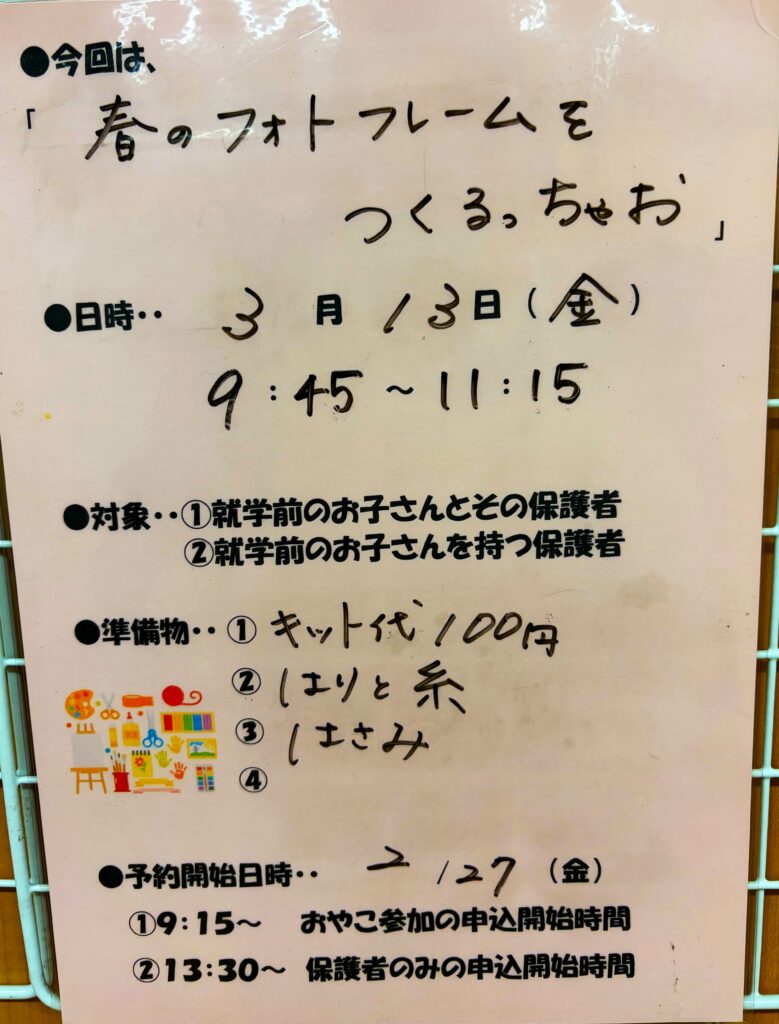 ●今回は、
「春のフォトフレームを
つくるっちゃお」
●日時‥ 3月13日(金)
9:45~11:15
●対象‥①就学前のお子さんとその保護者
②就学前のお子さんを持つ保護者
●準備物‥① キット代100円
② はりと糸
③ はさみ
④
●予約開始日時‥ 2/27(金)
①9:15~ おやこ参加の申込開始時間
②13:30~ 保護者のみの申込開始時間